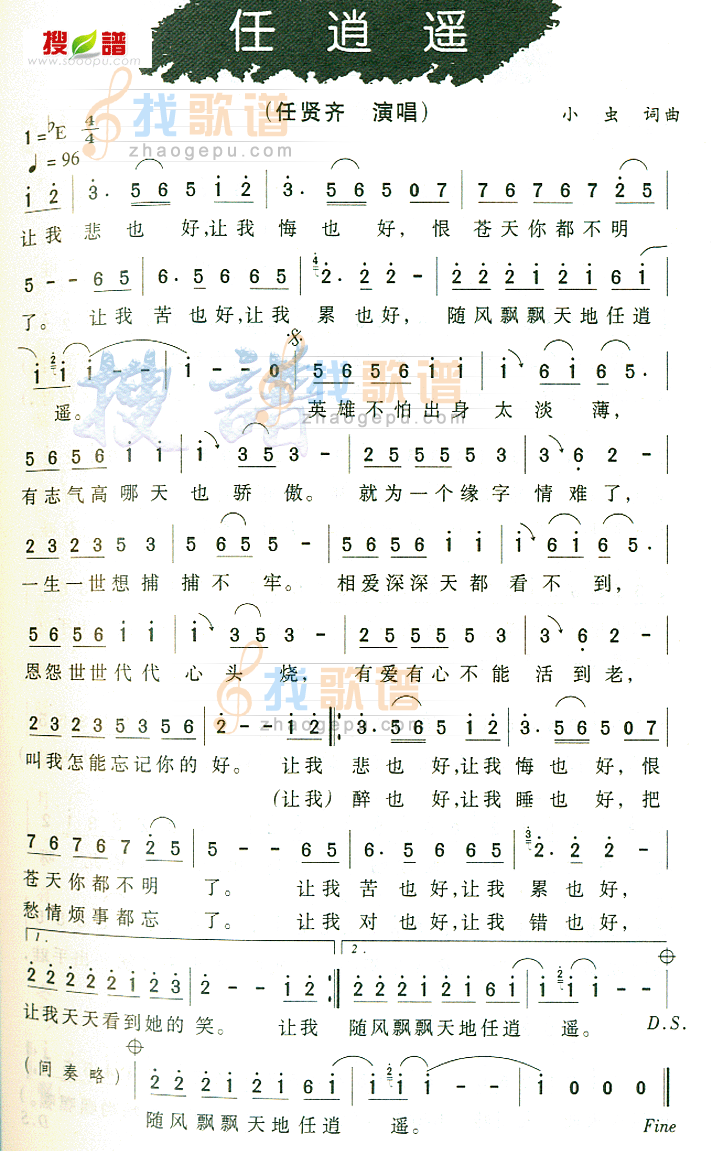 搜谱
www.sooopu.com
任逍遥
(任贤齐 演唱)
小虫 词曲
找歌谱
zhaogepu.com
1=♭E 4/4
♩=96
i 2 | 3. 5 6 5 i 2 | 3. 5 6 5 0 7 | 7 6 7 6 7 2 5 |
让我 悲也 好,让我 悔也 好, 恨 苍天你都不明
5 - - 6 5 | 6. 5 6 6 5 | 2. 2 2 - | 2 2 2 i 2 i 6 i |
了。 让我 苦也好,让我 累也好, 随风飘飘天地任逍
i i i - - | i - - 0 | 5 6 5 6 i i | i 6 i 6 5. |
遥。 英雄不怕出身 太淡 薄,
搜谱
找歌谱
zhaogepu.com
5 6 5 6 i i | i 3 5 3 - | 2 5 5 5 5 3 | 3 6 2 - |
有志气高哪天 也骄 傲。 就为一个缘字 情难了,
2 3 2 3 5 3 | 5 6 5 5 - | 5 6 5 6 i i | i 6 i 6 5. |
一生一世想捕 捕不 牢。 相爱深深天都 看不 到,
5 6 5 6 i i | i 3 5 3 - | 2 5 5 5 5 3 | 3 6 2 - |
恩怨世世代代 心头 烧, 有爱有心不能 活到老,
找歌谱
zhaogepu.com
2 3 2 3 5 3 5 6 | 2 - - i 2 |: 3. 5 6 5 i 2 | 3. 5 6 5 0 7 |
叫我怎能忘记你的 好。 让我 悲也 好,让我 悔也 好, 恨
(让我) 醉也 好,让我 睡也 好, 把
7 6 7 6 7 2 5 | 5 - - 6 5 | 6. 5 6 6 5 | 2. 2 2 - |
苍天你都不明 了。 让我 苦也好,让我 累也好,
愁情烦事都忘 了。 让我 对也好,让我 错也好,
1. 2.
2 2 2 2 2 i 2 3 | 2 - - i 2 :| 2 2 2 i 2 i 6 i | i i i - - |
让我天天看到她的 笑。 让我 随风飘飘天地任逍 遥。 D.S.
(间奏略) | 2 2 2 i 2 i 6 i | i i i - - | i 0 0 0 |
随风飘飘天地任逍 遥。 Fine